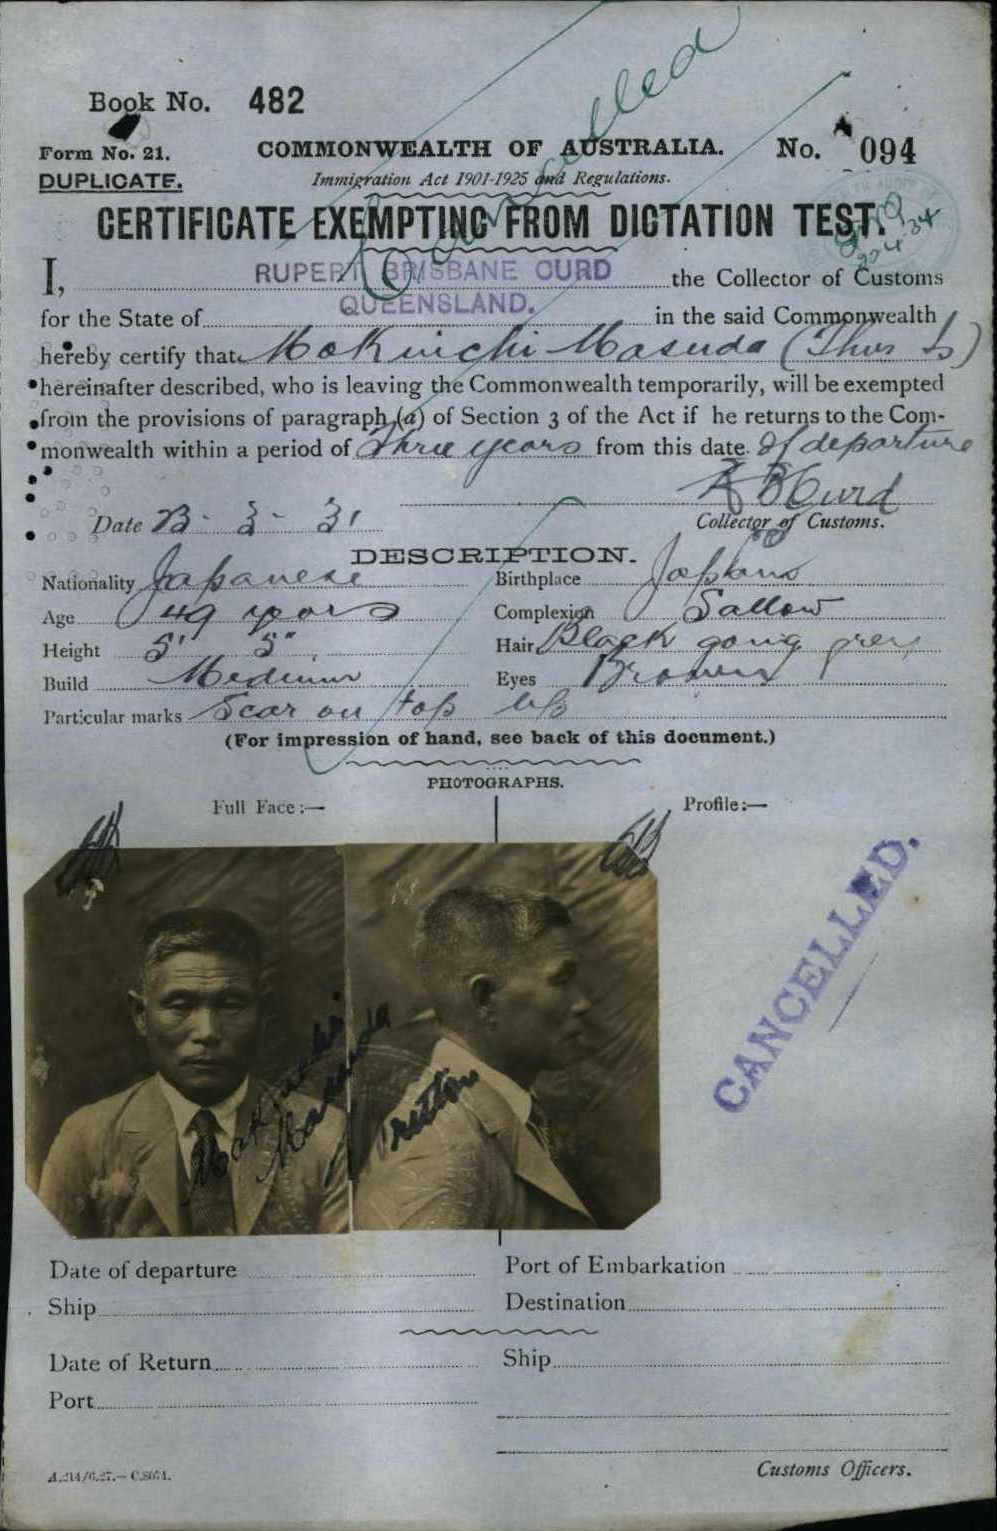 Cancelled
Book No. 482
Form No. 21.
COMMONWEALTH OF AUSTRALIA.
No. 094
DUPLICATE.
Immigration Act 1901-1925 and Regulations.
CERTIFICATE EXEMPTING FROM DICTATION TEST.
I, RUPERT BRISBANE CURD the Collector of Customs
for the State of QUEENSLAND. in the said Commonwealth
hereby certify that Makuichi Masuda (Thurs Is)
hereinafter described, who is leaving the Commonwealth temporarily, will be exempted
from the provisions of paragraph (a) of Section 3 of the Act if he returns to the Com-
monwealth within a period of Three years from this date of departure
R B Curd
Date 23 - 3 - 31
Collector of Customs.
DESCRIPTION.
Nationality Japanese Birthplace Japan
Age 49 years Complexion Sallow
Height 5' 5" Hair Black going grey
Build Medium Eyes Brown
Particular marks Scar on top lip
(For impression of hand, see back of this document.)
PHOTOGRAPHS.
Full Face:— Profile:—
CANCELLED.
Masuda
Date of departure Port of Embarkation
Ship Destination
Date of Return Ship
Port
Customs Officers.